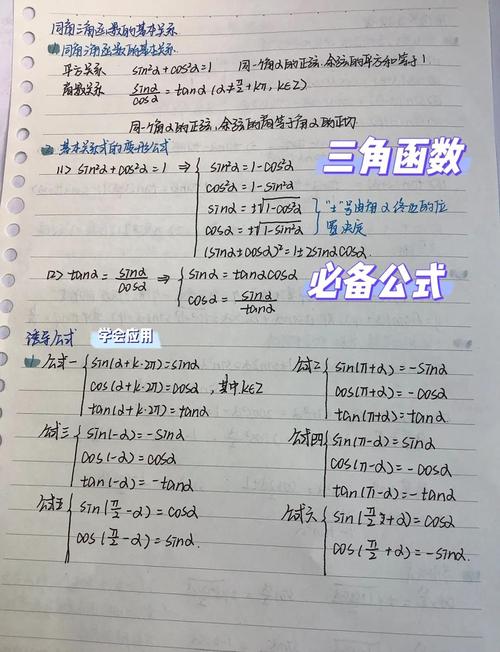 同角三角函数的基本关系
1 同角三角函数的基本关系.
平方关系 sin²α+cos²α=1 同一个角α的正弦、余弦的平方和等于1
商数关系 sinα/cosα=tanα (α≠π/2+kπ, k∈Z)
同一个角α的正弦、余弦的商等于角α的正切
2 基本关系式的变形公式
三角函数
(1) sin²α+cos²α=1 ⇒ { sin²α=1-cos²α
cos²α=1-sin²α
sinα=±√1-cos²α
cosα=±√1-sin²α
} "±"号由角α终边的位
置决定
(sinα±cosα)²=1±2sinαcosα.
(2) tanα=sinα/cosα ⇒ { sinα=tanαcosα
cosα=sinα/tanα
必备公式
诱导公式 学会应用
1. 公式一 { sin(α+k·2π)=sinα
cos(α+k·2π)=cosα, 其中k∈Z
tan(α+k·2π)=tanα
公式二 { sin(π+α)=-sinα
cos(π+α)=-cosα
tan(π+α)=tanα.
公式三 { sin(-α)=-sinα
cos(-α)=cosα
tan(-α)=-tanα
公式四 { sin(π-α)=sinα
cos(π-α)=-cosα
tan(π-α)=-tanα
公式五 { sin(π/2-α)=cosα
cos(π/2-α)=sinα.
公式六 { sin(π/2+α)=cosα
cos(π/2+α)=-sinα.